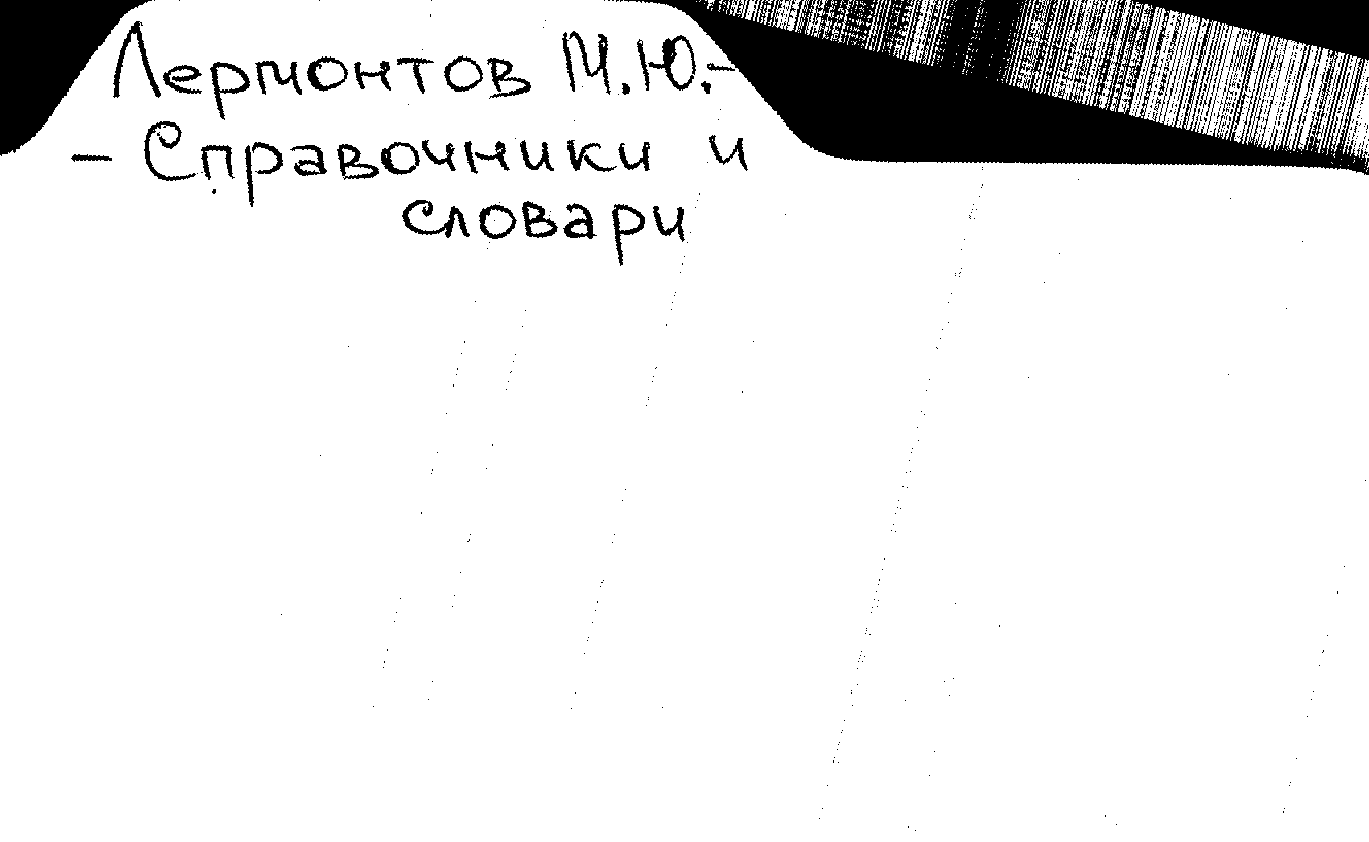 Лермонтов М.Ю.-
- Справочники и
словари